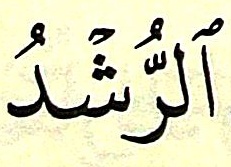 ٱلرُّشۡدُ